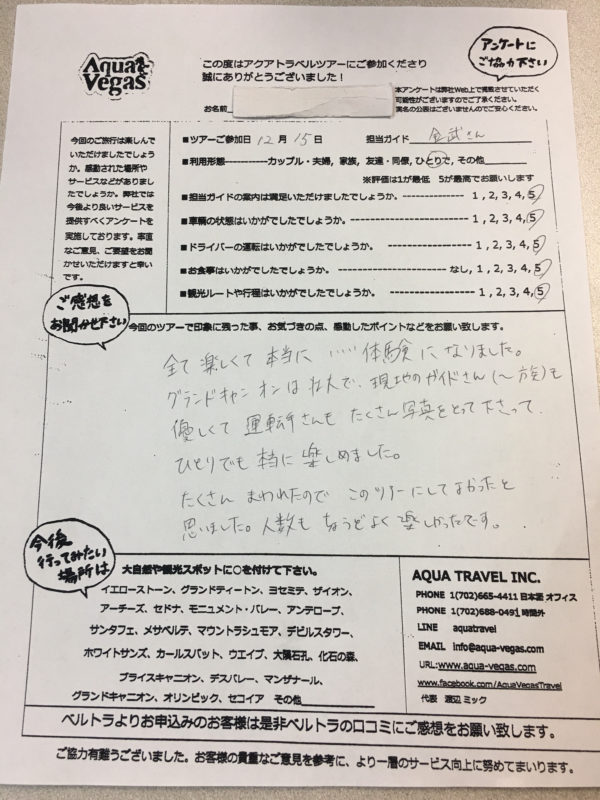 Aqua
Vegas
この度はアクアトラベルツアーにご参加くださり
誠にありがとうございました！
アンケートに
ご協力下さい
お名前
本アンケートは弊社Web上で掲載させていただく
可能性がございますのでご了承ください。
実名の公表はございませんのでご安心ください。
今回のご旅行は楽しんで
いただけましたでしょう
か。感動された場所や
サービスなどがありまし
たでしょうか。弊社では
今後より良いサービスを
提供すべくアンケートを
実施しております。率直
なご意見、ご要望をお聞
かせいただけますと幸い
です。
■ツアーご参加日 12月 15日 担当ガイド 金武さん
■利用形態-----------カップル・夫婦, 家族, 友達・同僚, ひとりで, その他
※評価は1が最低 5が最高でお願いします
■担当ガイドの案内は満足いただけましたでしょうか。 --------------- 1 , 2, 3, 4, 5
■車輌の状態はいかがでしたでしょうか。 --------------- 1 , 2, 3, 4, 5
■ドライバーの運転はいかがでしたでしょうか。 --------------- 1 , 2, 3, 4, 5
■お食事はいかがでしたでしょうか。 --------------- なし, 1 , 2, 3, 4, 5
■観光ルートや行程はいかがでしたでしょうか。 --------------- 1 , 2, 3, 4, 5
ご感想を
お聞かせ下さい
今回のツアーで印象に残った事、お気づきの点、感動したポイントなどをお願い致します。
全て楽しくて本当にいい体験になりました。
グランドキャンオンは壮大で、現地のガイドさん(〜族)も
優しくて運転手さんもたくさん写真をとって下さって、
ひとりでも本当に楽しめました。
たくさんまわれたのでこのツアーにしてよかったと
思いました。人数もちょうどよく楽しかったです。
今後
行ってみたい
場所は
大自然や観光スポットに○を付けて下さい。
イエローストーン、グランドティートン、ヨセミテ、ザイオン、
アーチーズ、セドナ、モニュメント・バレー、アンテロープ、
サンタフェ、メサベルデ、マウントラシュモア、デビルスタワー、
ホワイトサンズ、カールスバット、ウエイブ、大隕石孔、化石の森、
ブライスキャニオン、デスバレー、マンザナール、
グランドキャニオン、オリンピック、セコイア その他
AQUA TRAVEL INC.
PHONE 1(702)665-4411 日本語 オフィス
PHONE 1(702)688-0491 時間外
LINE aquatravel
EMAIL info@aqua-vegas.com
URL:www.aqua-vegas.com
www.facebook.com/AquaVegasTravel
代表 渡辺 ミック
ベルトラよりお申込みのお客様は是非ベルトラの口コミにご感想をお願い致します。
ご協力有難うございました。お客様の貴重なご意見を参考に、より一層のサービス向上に努めてまいります。